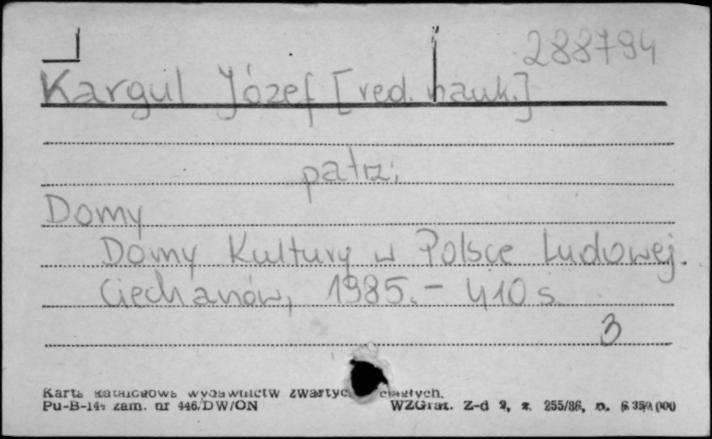 288794
Kargul Józef [red. nauk.]
patrz:
Domy
Domy Kultury w Polsce Ludowej.
Ciechanów, 1985. – 410 s.
3
Karta katalogowa wydawnictw zwartych ciągłych.
Pu-B-14 zam. nr 446/DW/ON WZGraf. Z-d 2, z. 255/86, n.